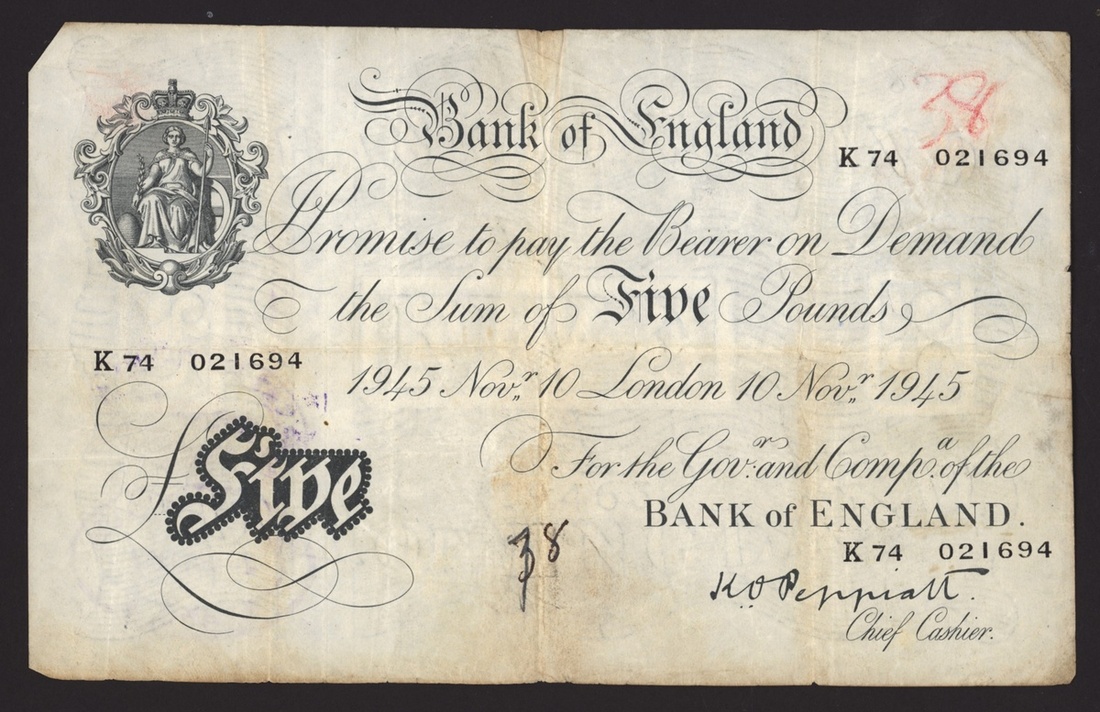 Bank of England
38
K 74 021694
I Promise to pay the Bearer on Demand
the Sum of Five Pounds
K 74 021694
1945 Novr. 10 London 10 Novr. 1945
For the Govr. and Compa. of the
BANK of ENGLAND.
£Five
38
K 74 021694
K.O. Peppiatt.
Chief Cashier.